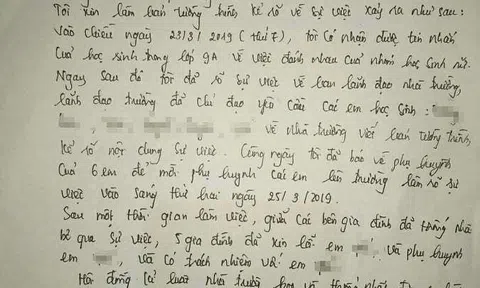 Tôi xin làm bản tường trình kể rõ về sự việc xảy ra như sau:
Vào chiều ngày 23/3/2019 (thứ 7), tôi có nhận được tin nhắn
của học sinh trong lớp 9A về việc đánh nhau của nhóm học sinh nữ.
Ngay sau đó tôi đã sự việc về ban lãnh đạo nhà trường,
lãnh đạo trường đã chỉ đạo yêu cầu các em học sinh:
về nhà trường viết bản tường trình
kể rõ nội dung sự việc. Cùng ngày tôi đã báo về phụ huynh
của 6 em để mời phụ huynh các em lên trường làm rõ sự
việc vào sáng thứ hai ngày 25/3/2019.
Sau một thời gian làm việc, giữa các bên gia đình đã thống nhất
bỏ qua sự việc, 5 gia đình đã xin lỗi em và phụ huynh
em , và có trách nhiệm với em
Hội đồng kỉ luật nhà trường họp và thống nhất